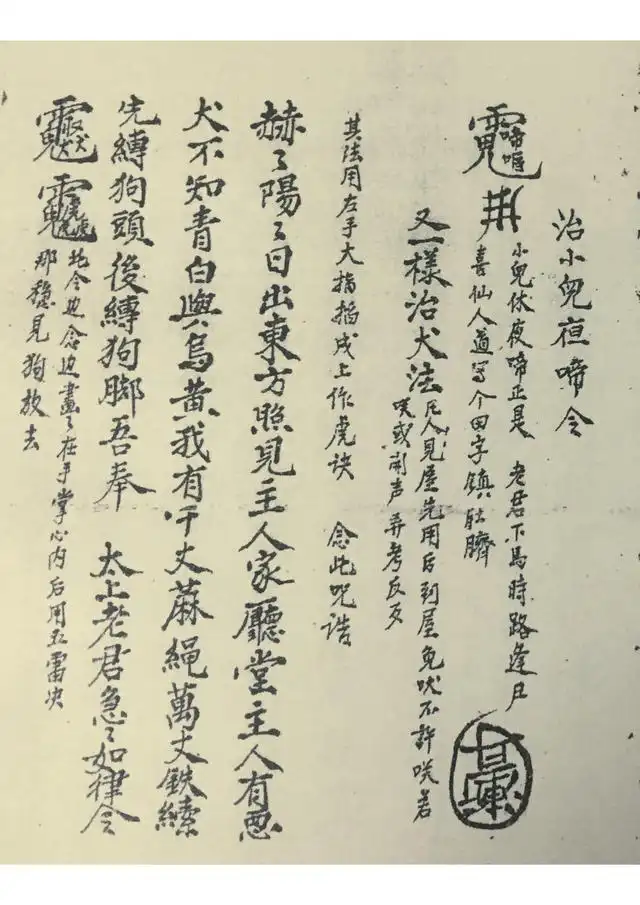 治小兒夜啼令
小兒休夜啼正是 老君下馬時路逢尸
喜仙人道寫个田字鎮肚臍
又一樣治犬法
凡人見屋先用后到屋免吠不許咲若
咲或開声弄考反歹
其法用左手大指掐戌上作虎訣 念此咒語
赫〻陽〻日出東方照見主人家廳堂主人有惡
犬不知青白與烏黄我有千丈蔴繩萬丈鉄縤
先縛狗頭後縛狗脚吾奉 太上老君急〻如律令
此令边念边畫〻在手掌心内后用五雷决
那穩見狗放去